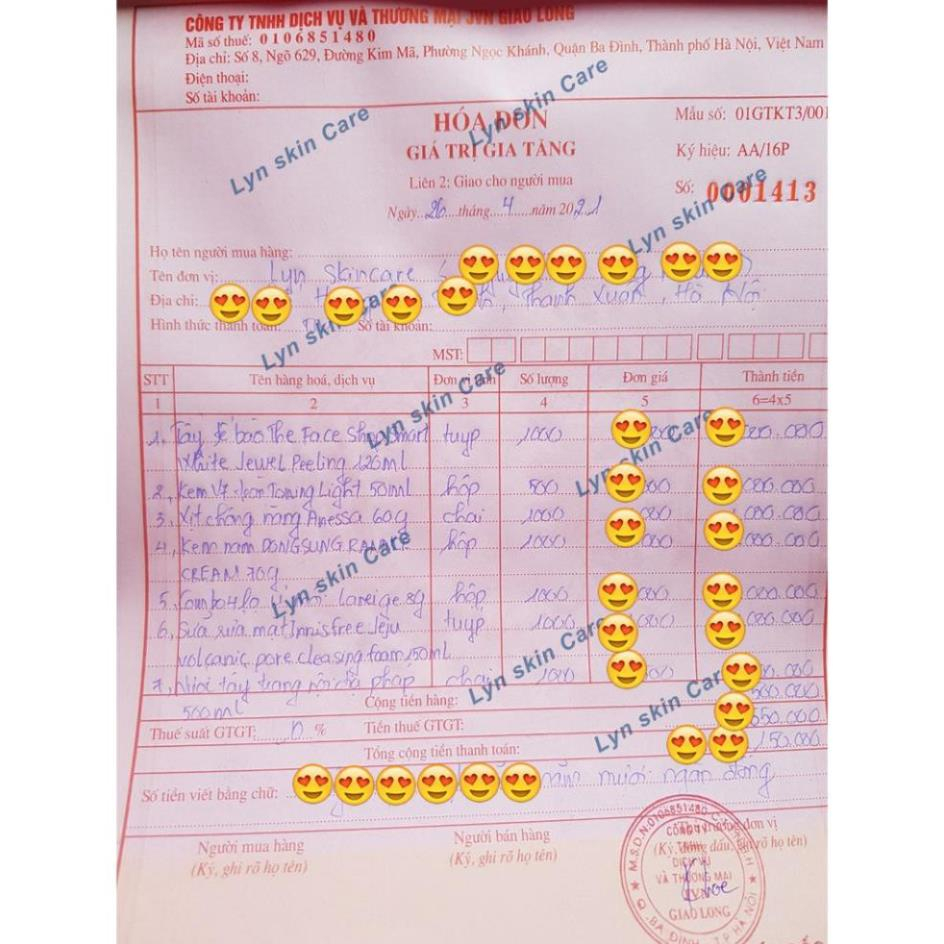 CÔNG TY TNHH DỊCH VỤ VÀ THƯƠNG MẠI JVN GIAO LONG
Mã số thuế: 0106851480
Địa chỉ: Số 8, Ngõ 629, Đường Kim Mã, Phường Ngọc Khánh, Quận Ba Đình, Thành phố Hà Nội, Việt Nam
Điện thoại:
Số tài khoản:
HÓA ĐƠN
GIÁ TRỊ GIA TĂNG
Liên 2: Giao cho người mua
Ngày 26 tháng 4 năm 2021
Mẫu số: 01GTKT3/001
Ký hiệu: AA/16P
Số: 0001413
Lyn skin Care
Lyn skin Care
Lyn skin Care
Họ tên người mua hàng:
Tên đơn vị: Lyn skincare
Địa chỉ: Thanh Xuân, Hà Nội
Hình thức thanh toán: Số tài khoản:
Lyn skin Care
MST:
STT Tên hàng hoá, dịch vụ Đơn vị Số lượng Đơn giá Thành tiền
1 2 3 4 5 6=4x5
Lyn skin Care
Lyn skin Care
1, Tẩy tế bào The Face Shop Smart tuýp 1000 000.000
White Jewel Peeling 120ml
2, Kem V7 Toning Light 50ml hộp 500 000.000
3, Xịt chống nắng Anessa 60g chai 1000 000.000
4, Kem nám DONGSUNG hộp 1000 000.000
CREAM 70g
Lyn skin Care
5, Combo Laneige 8g hộp 1000 000.000
6, Sữa rửa mặt Innisfree Jeju tuýp 1000 000.000
volcanic pore cleasing foam 150ml
Lyn skin Care
7, tẩy trang pháp chai 000.000
500ml
Cộng tiền hàng: 500.000
Thuế suất GTGT: % Tiền thuế GTGT: 650.000
Tổng cộng tiền thanh toán: 150.000
Lyn skin Care
Số tiền viết bằng chữ: năm mươi ngàn đồng
Người mua hàng
(Ký, ghi rõ họ tên)
Người bán hàng
(Ký, ghi rõ họ tên)
Thủ trưởng đơn vị
(Ký, đóng dấu, ghi rõ họ tên)
M.S.D.N:0106851480
CÔNG TY
TNHH
DỊCH VỤ
VÀ THƯƠNG MẠI
JVN
GIAO LONG
BA ĐÌNH - T.P HÀ NỘI